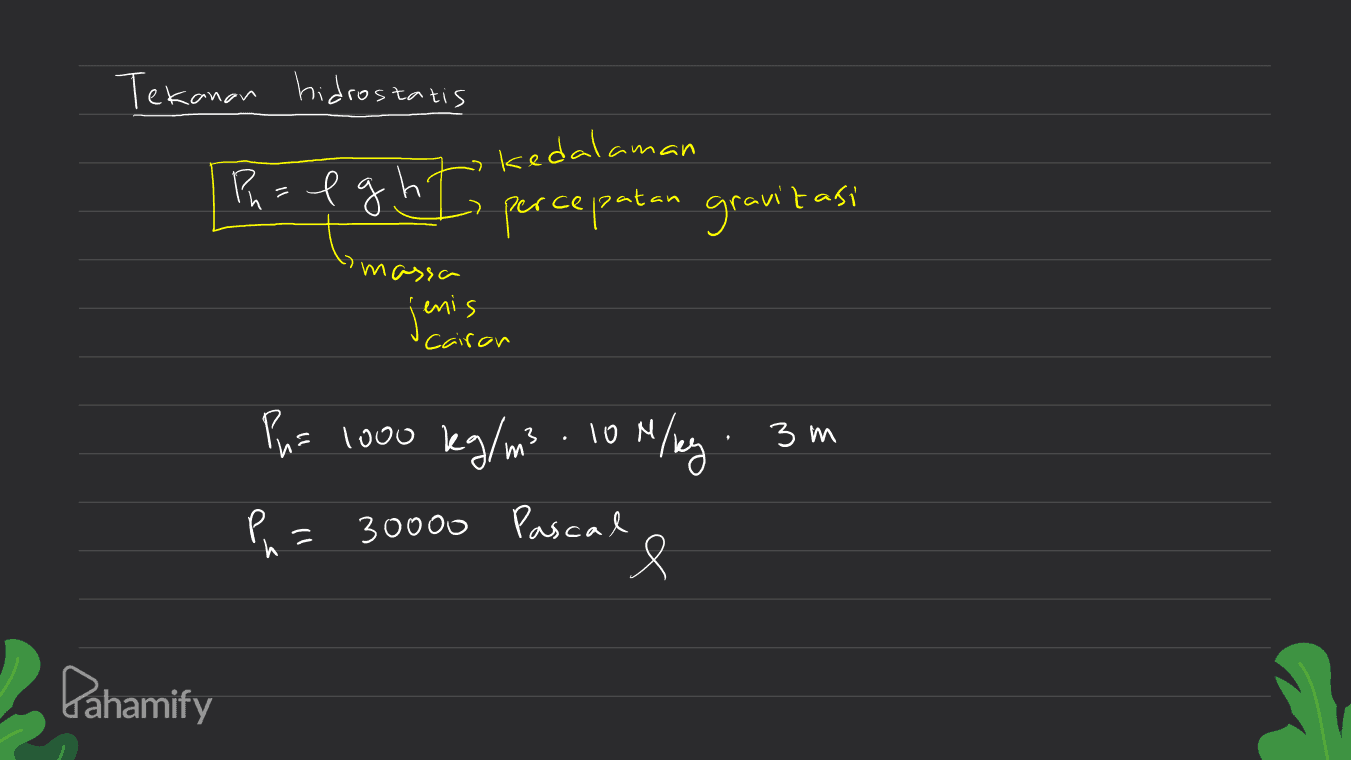 Tekanan hidrostatis
Ph = ρ g h
kedalaman
percepatan gravitasi
massa
jenis
cairan
Ph = 1000 kg/m³ . 10 N/kg . 3 m
Ph = 30000 Pascal
Pahamify